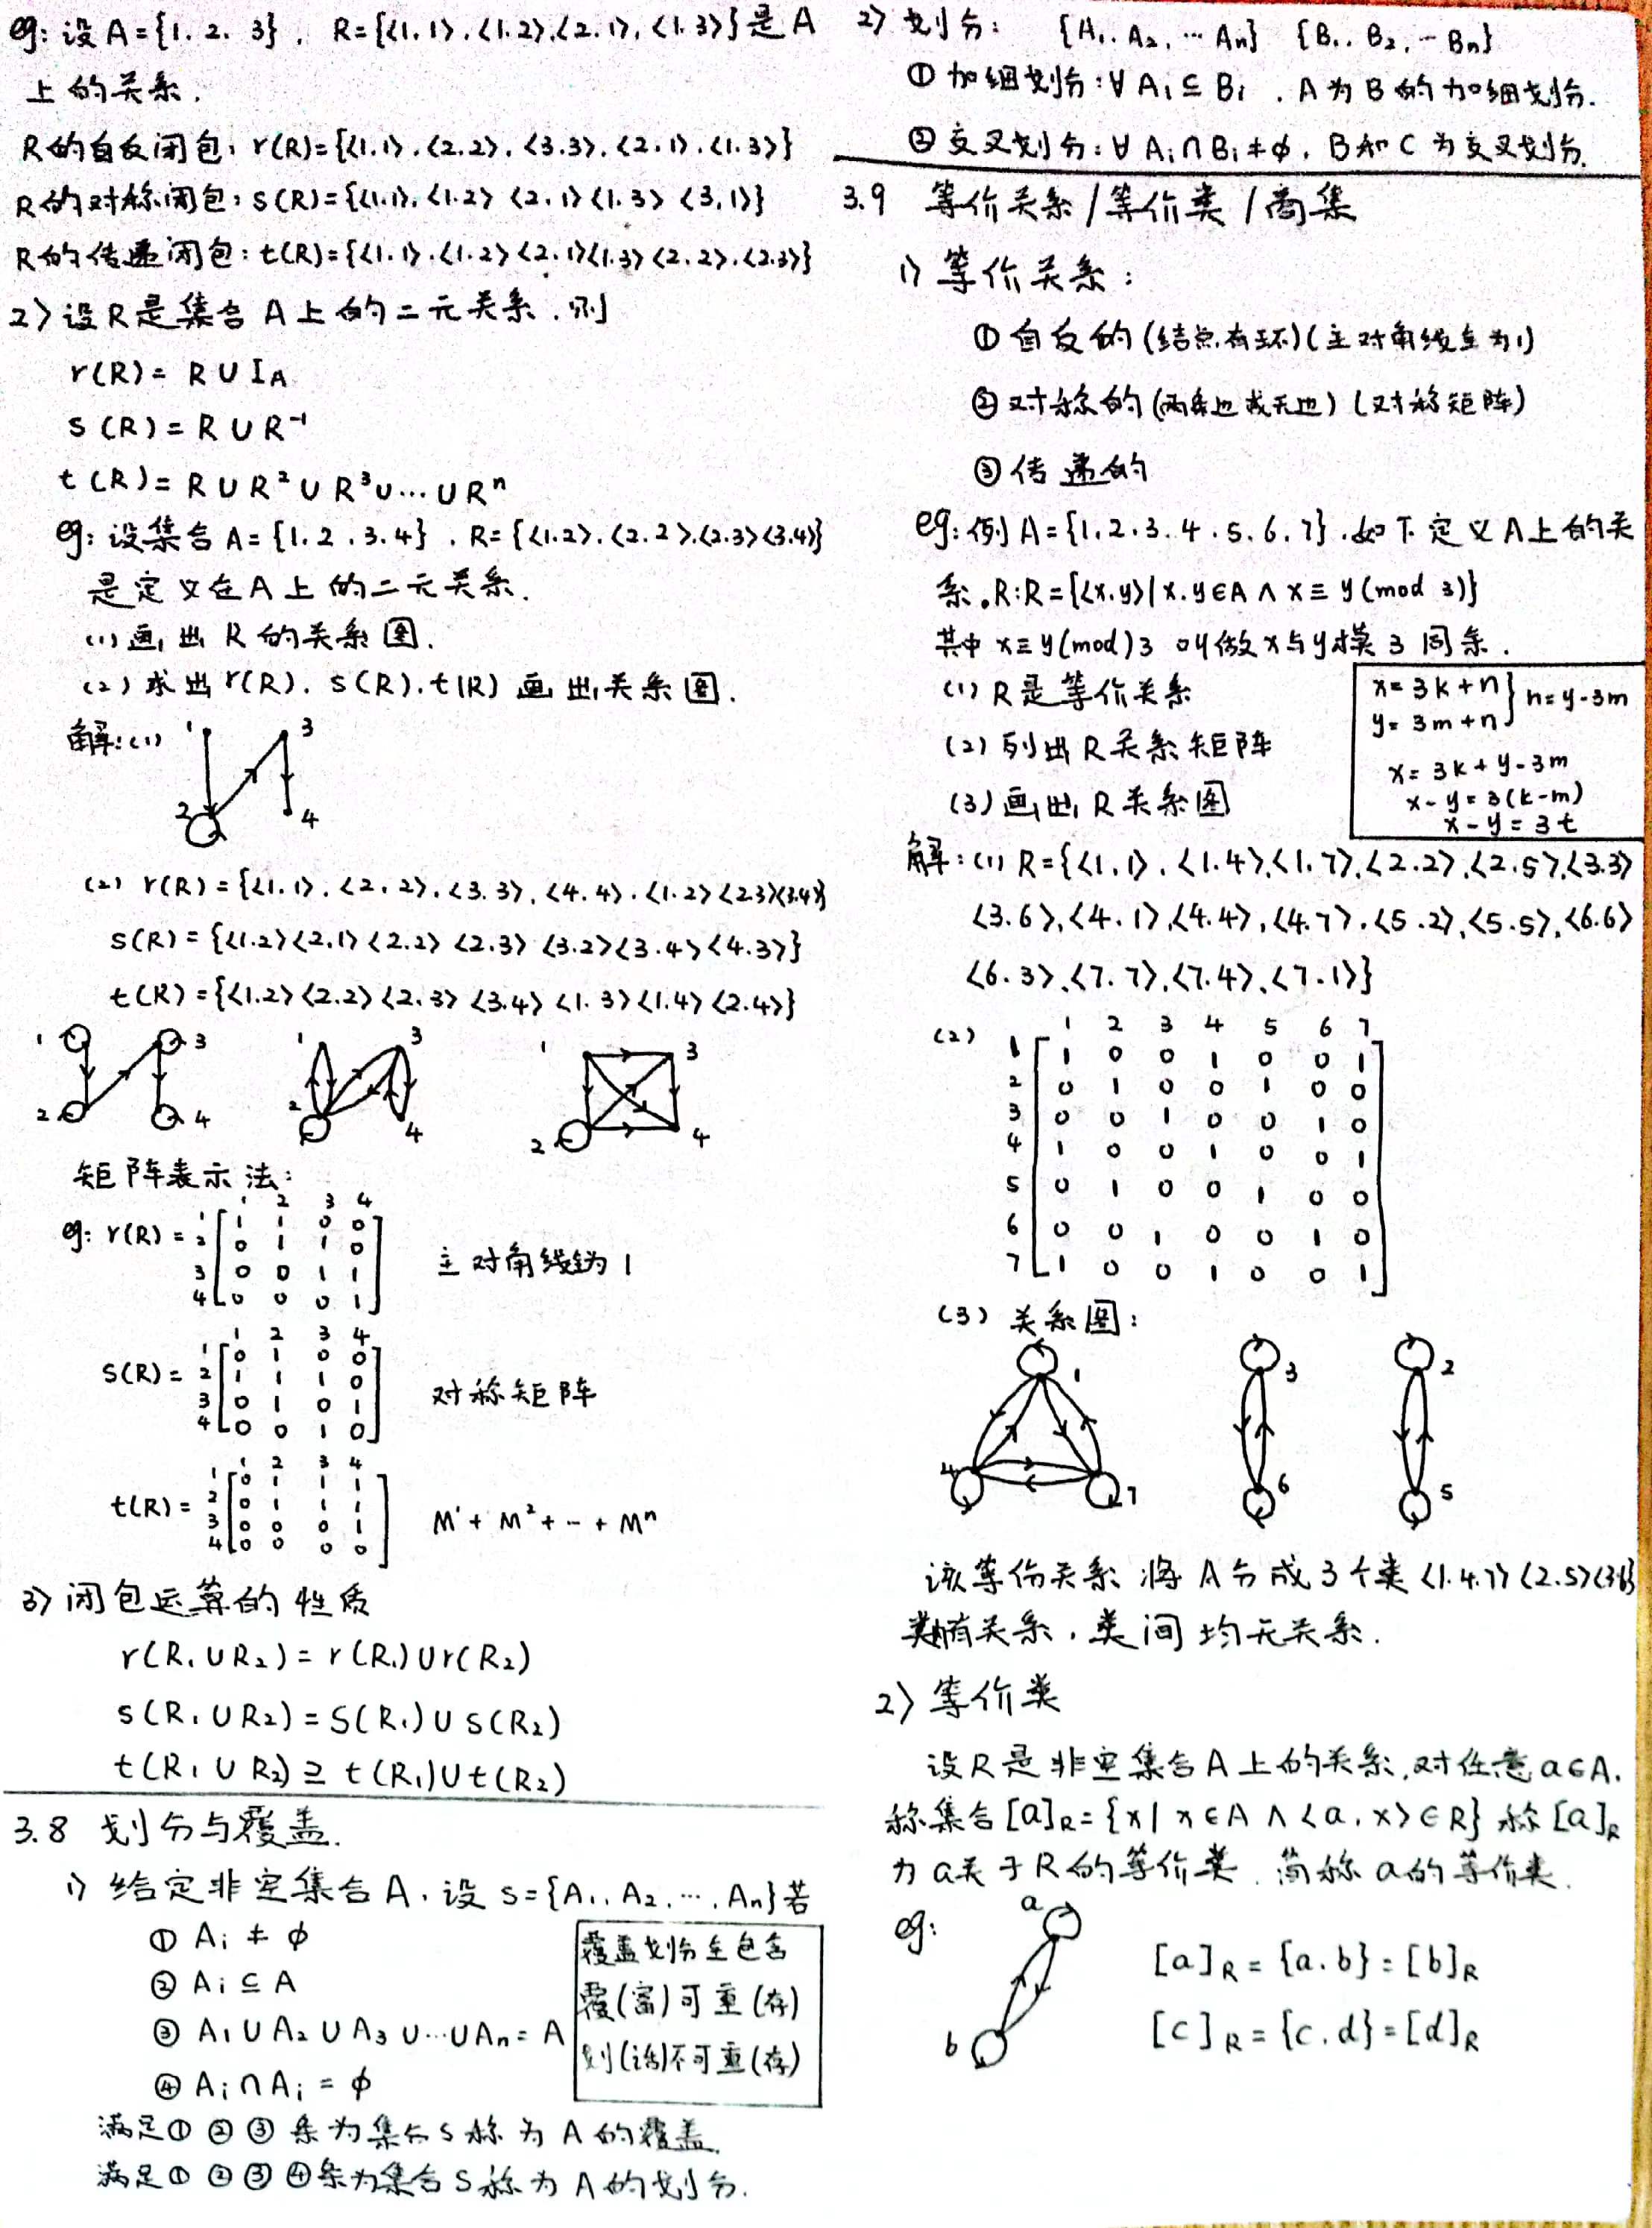 eg: 设 A={1. 2. 3}, R={<1.1>.<1.2>.<2.1>,<1.3>}是A
上的关系.
R的自反闭包: r(R)={<1.1>.<2.2>.<3.3>.<2.1>.<1.3>}
R的对称闭包: s(R)={<1.1>.<1.2> <2.1><1.3> <3.1>}
R的传递闭包: t(R)={<1.1>.<1.2><2.1><1.3><2.2>.<2.3>}
2> 设R是集合A上的二元关系.则
r(R)= R∪I_A
s(R)= R∪R⁻¹
t(R)= R∪R²∪R³∪…∪Rⁿ
eg: 设集合A={1.2.3.4}. R={<1.2>.<2.2>.<2.3><3.4>}
是定义在A上的二元关系.
(1)画出R的关系图.
(2)求出r(R).s(R).t(R)画出关系图.
解:(1) 1 3
2 4
(2) r(R)={<1.1>.<2.2>.<3.3>.<4.4>.<1.2><2.3><3.4>}
s(R)={<1.2><2.1><2.2><2.3><3.2><3.4><4.3>}
t(R)={<1.2><2.2><2.3><3.4><1.3><1.4><2.4>}
1 3 1 3 1 3
2 4 2 4 2 4
矩阵表示法:
1 2 3 4
eg: r(R)= 1 [1 1 0 0]
2 [0 1 1 0] 主对角线全为1
3 [0 0 1 1]
4 [0 0 0 1]
1 2 3 4
s(R)= 1 [0 1 0 0]
2 [1 1 1 0] 对称矩阵
3 [0 1 0 1]
4 [0 0 1 0]
1 2 3 4
t(R)= 1 [0 1 1 1]
2 [0 1 1 1] M¹+M²+…+Mⁿ
3 [0 0 0 1]
4 [0 0 0 0]
3> 闭包运算的性质
r(R₁∪R₂)=r(R₁)∪r(R₂)
s(R₁∪R₂)=s(R₁)∪s(R₂)
t(R₁∪R₂)⊇t(R₁)∪t(R₂)
3.8 划分与覆盖.
1> 给定非空集合A.设 s={A₁.A₂.….An}若
① Ai ≠ ϕ
② Ai ⊆ A
③ A₁∪A₂∪A₃∪…∪An=A
④ Ai∩Aj=ϕ
覆盖划分全包含
覆(富)可重(存)
划(话)不可重(存)
满足①②③条为集合S称为A的覆盖.
满足①②③④条为集合S称为A的划分.
2> 划分: {A₁.A₂.…An} {B₁.B₂.…Bn}
①加细划分:∀Ai⊆Bi.A为B的加细划分.
②交叉划分:∀Ai∩Bi≠ϕ,B和C为交叉划分.
3.9 等价关系/等价类/商集
1> 等价关系:
①自反的(结点有环)(主对角线全为1)
②对称的(两条边或无边)(对称矩阵)
③传递的
eg:例A={1.2.3.4.5.6.7}.如下定义A上的关
系.R:R={<x.y>|x.y∈A∧x≡y(mod 3)}
其中 x≡y(mod)3 叫做x与y模3同余.
(1) R是等价关系
(2) 列出R关系矩阵
(3) 画出R关系图
x=3k+n
y=3m+n } n=y-3m
x=3k+y-3m
x-y=3(k-m)
x-y=3t
解:(1) R={<1.1>.<1.4>.<1.7>.<2.2>.<2.5>.<3.3>
<3.6>,<4.1>,<4.4>,<4.7>.<5.2>,<5.5>,<6.6>
<6.3>.<7.7>.<7.4>.<7.1>}
(2) 1 2 3 4 5 6 7
1 [1 0 0 1 0 0 1]
2 [0 1 0 0 1 0 0]
3 [0 0 1 0 0 1 0]
4 [1 0 0 1 0 0 1]
5 [0 1 0 0 1 0 0]
6 [0 0 1 0 0 1 0]
7 [1 0 0 1 0 0 1]
(3) 关系图:
1 3 2
4 7 6 5
该等价关系将A分成3个类<1.4.7><2.5><3.6>
类内有关系,类间均无关系.
2> 等价类
设R是非空集合A上的关系,对任意a∈A.
称集合[a]R={x|x∈A∧<a,x>∈R}称[a]R
为a关于R的等价类.简称a的等价类.
eg: a
b
[a]R={a.b}=[b]R
[c]R={c.d}=[d]R